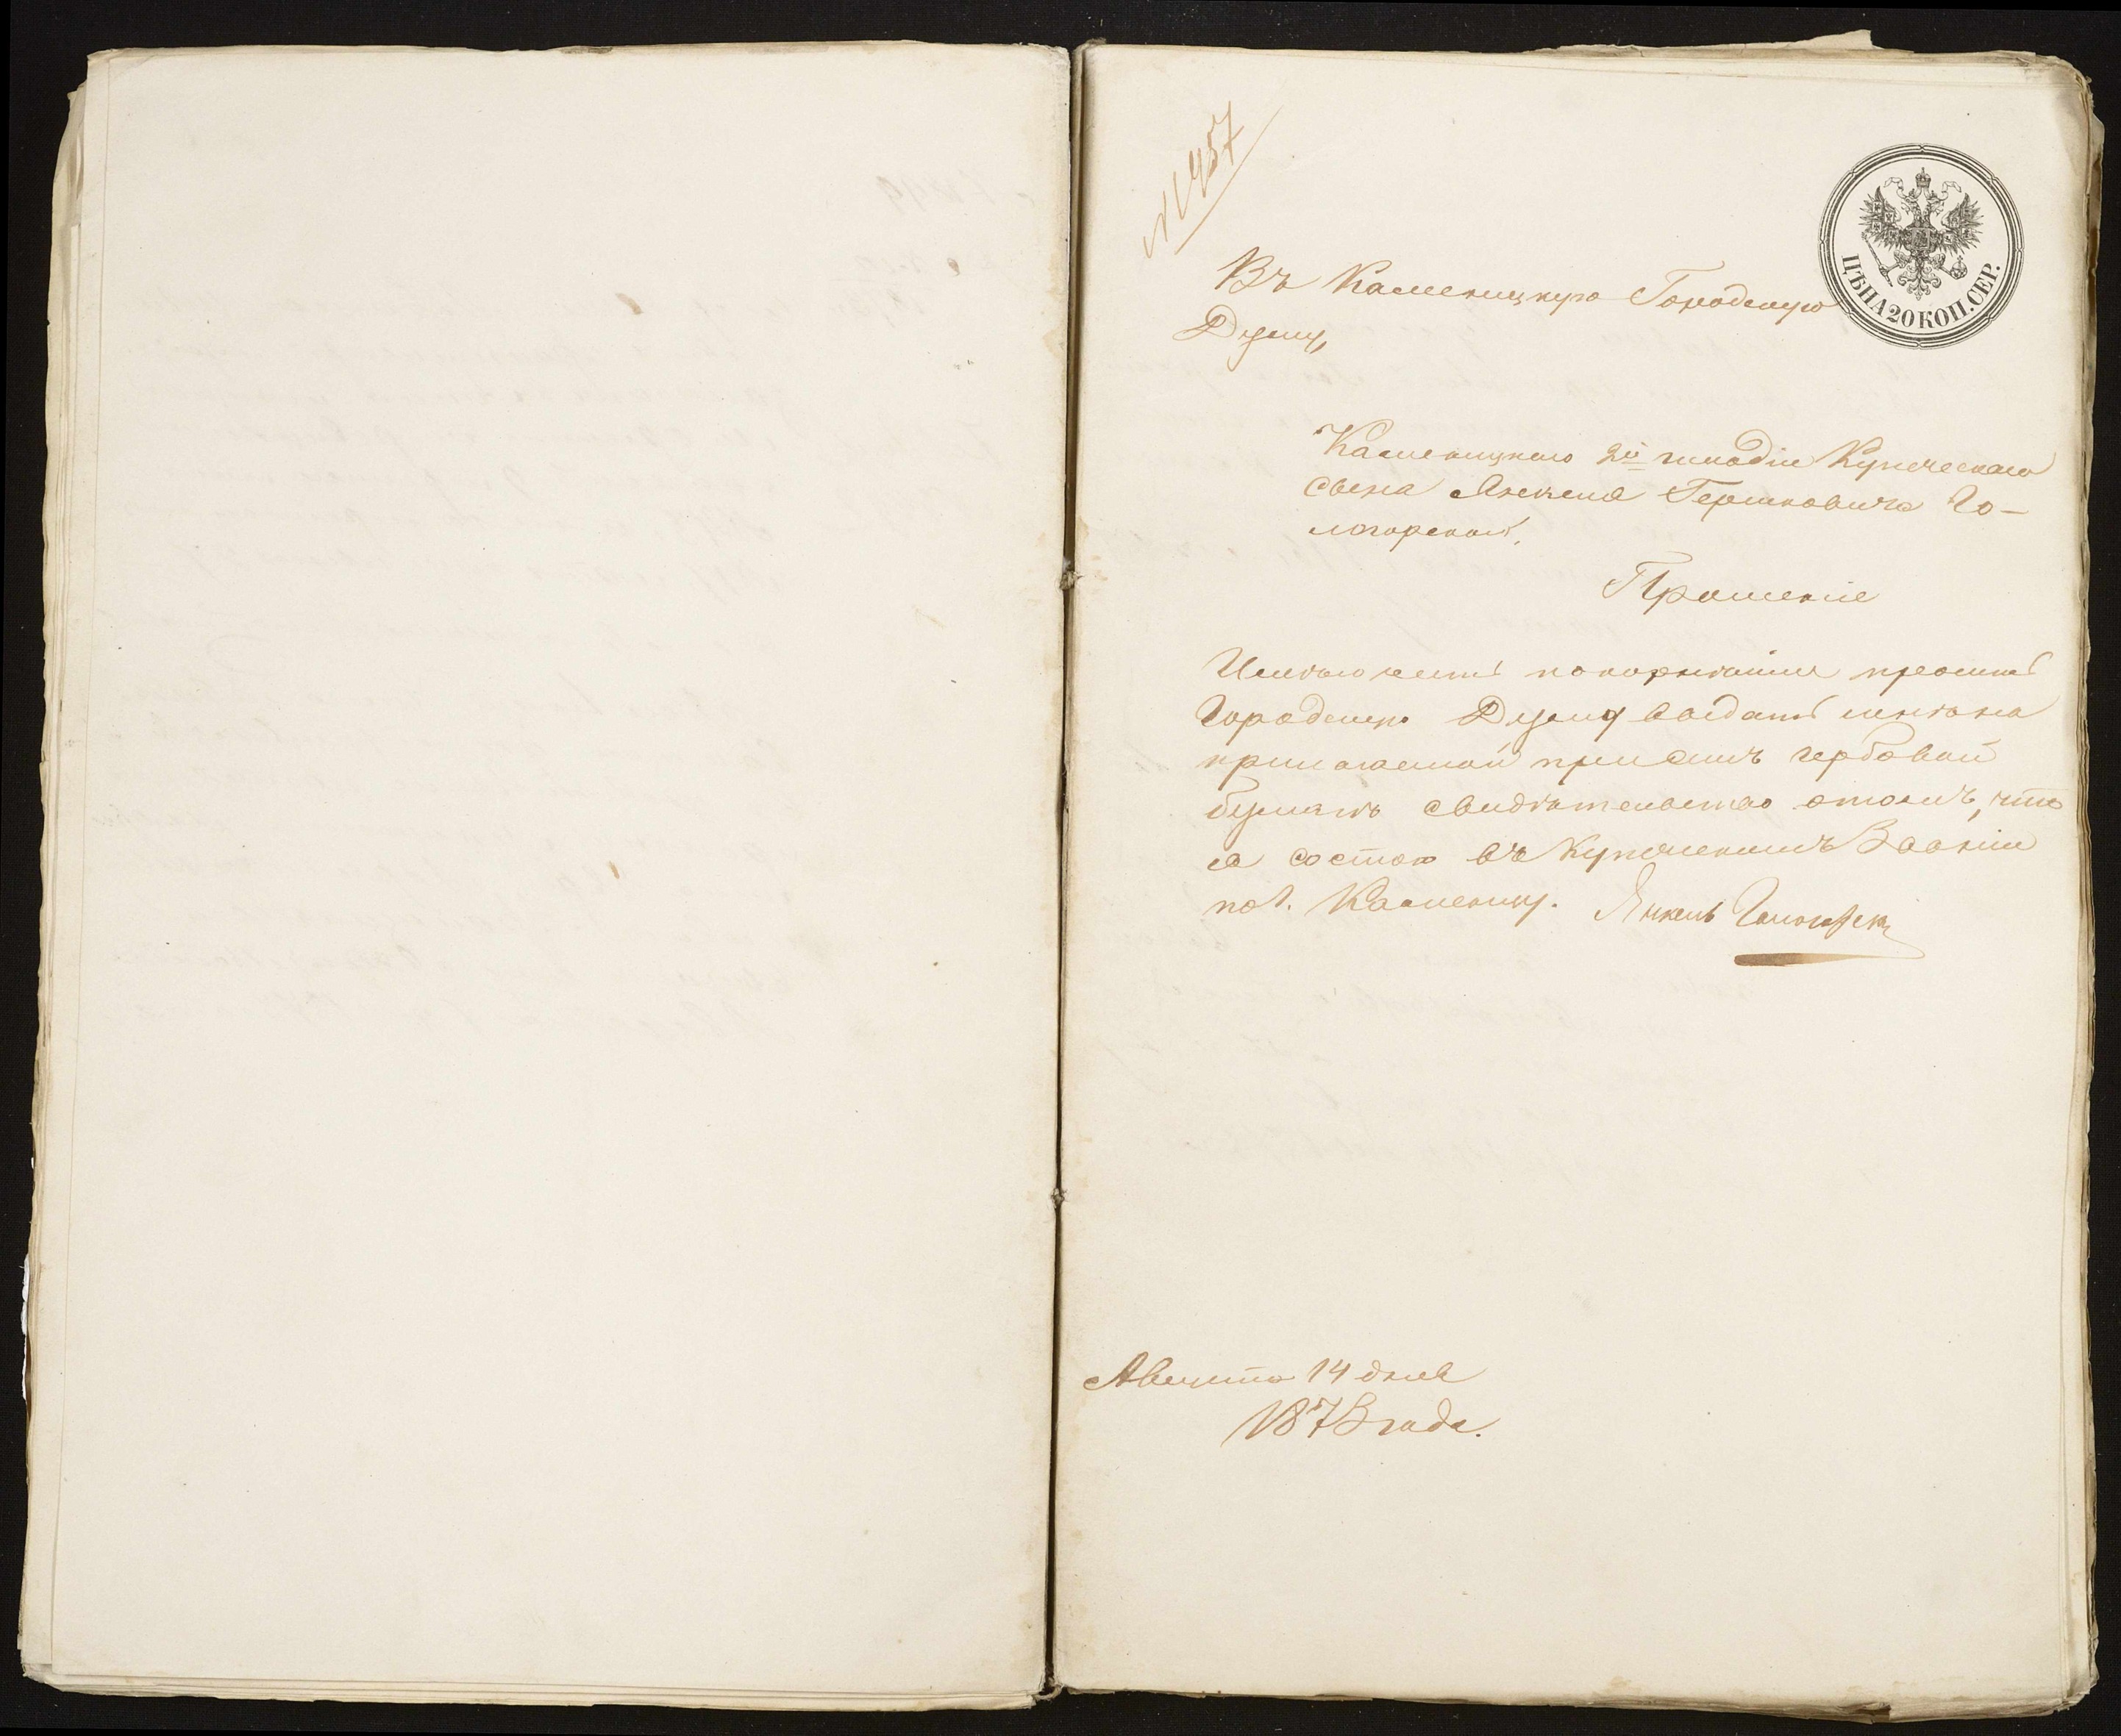 № 457
ЦѢНА 20 КОП. СЕР.
Въ Каменицкую Городскую
Думу,
Каменицкаго 2й гильдіи Купеческаго
сына Янкеля Гершковича Го-
логорскаго,
Прошеніе
Имѣю честь покорнѣйше просить
Городскую Думу выдать мнѣ на
прилагаемой при семъ гербовой
бумагѣ свидѣтельство о томъ, что
я состою въ купеческомъ Званіи
по г. Каменцу. Янкель Гологорскі
Августа 14 дня
1873 года.